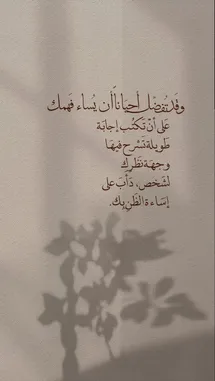 وقَد تُفضّل أحيانًا أن يُساء فهمك
على أنْ تَكتُب إجابة
طويلة تَشرح فيها
وجهَة نَظرك
لشَخص، دَأبَ على
إسَاءة الظّنِ بِك.